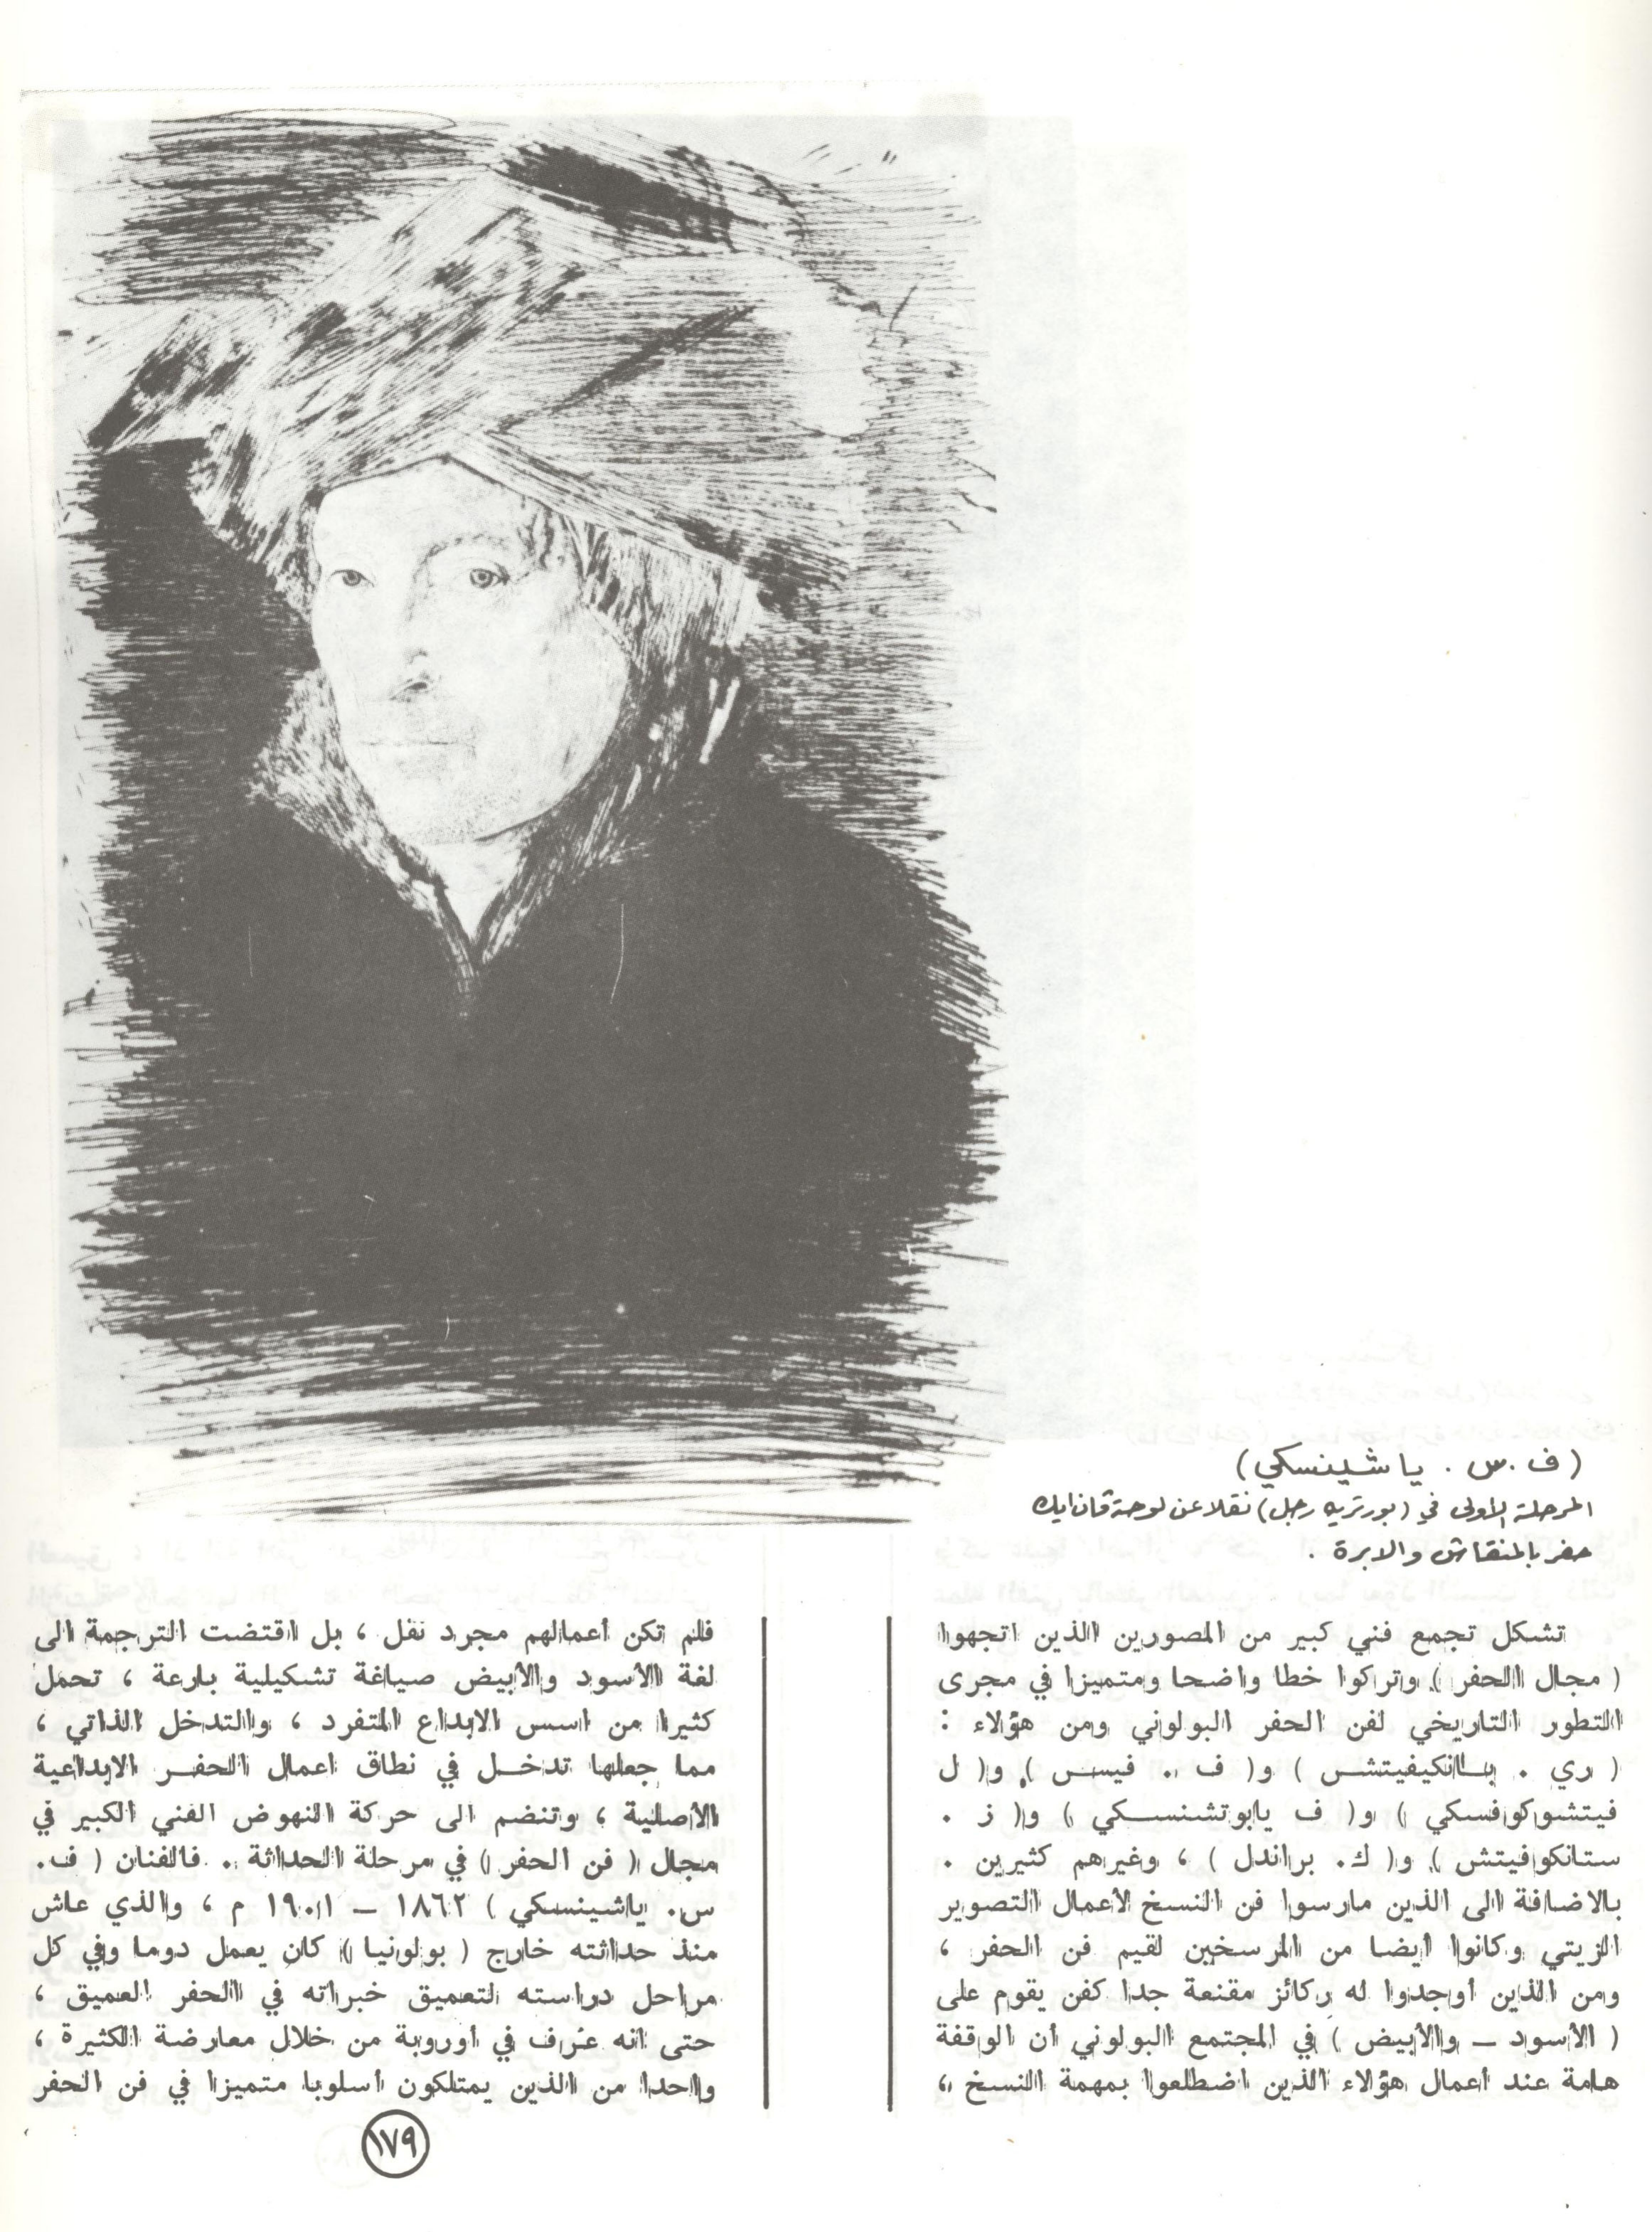 ( ف . س . ياشينسكي )
المرحلة الأولى في ( بورتريه رجل ) نقلا عن لوحة ڤان ايك
حفر بالمنقاش والابرة .
تشكل تجمع فني كبير من المصورين الذين اتجهوا
( مجال الحفر ) وتركوا خطا واضحا ومتميزا في مجرى
التطور التاريخي لفن الحفر البولوني ومن هؤلاء :
( ري . بانكيفيتش ) و( ف . فيس ) و( ل
فيتشوكوفسكي ) و( ف يابوتشنسكي ) و( ز .
ستانكوفيتش ) و( ك. براندل ) ، وغيرهم كثيرين .
بالاضافة الى الذين مارسوا فن النسخ لأعمال التصوير
الزيتي وكانوا ايضا من المرسخين لقيم فن الحفر ،
ومن الذين أوجدوا له ركائز مقنعة جدا كفن يقوم على
( الأسود – والأبيض ) في المجتمع البولوني أن الوقفة
هامة عند أعمال هؤلاء الذين اضطلعوا بمهمة النسخ ،
فلم تكن أعمالهم مجرد نقل ، بل اقتضت الترجمة الى
لغة الأسود والأبيض صياغة تشكيلية بارعة ، تحمل
كثيرا من اسس الابداع المتفرد ، والتدخل الذاتي ،
مما جعلها تدخل في نطاق اعمال الحفر الابداعية
الأصلية ، وتنضم الى حركة النهوض الفني الكبير في
مجال ( فن الحفر ) في مرحلة الحداثة . فالفنان ( ف.
س. ياشينسكي ) ١٨٦٢ – ١٩٠١ م ، والذي عاش
منذ حداثته خارج ( بولونيا ) كان يعمل دوما وفي كل
مراحل دراسته لتعميق خبراته في الحفر العميق ،
حتى انه عرف في أوروبة من خلال معارضة الكثيرة ،
واحدا من الذين يمتلكون أسلوبا متميزا في فن الحفر
١٧٩